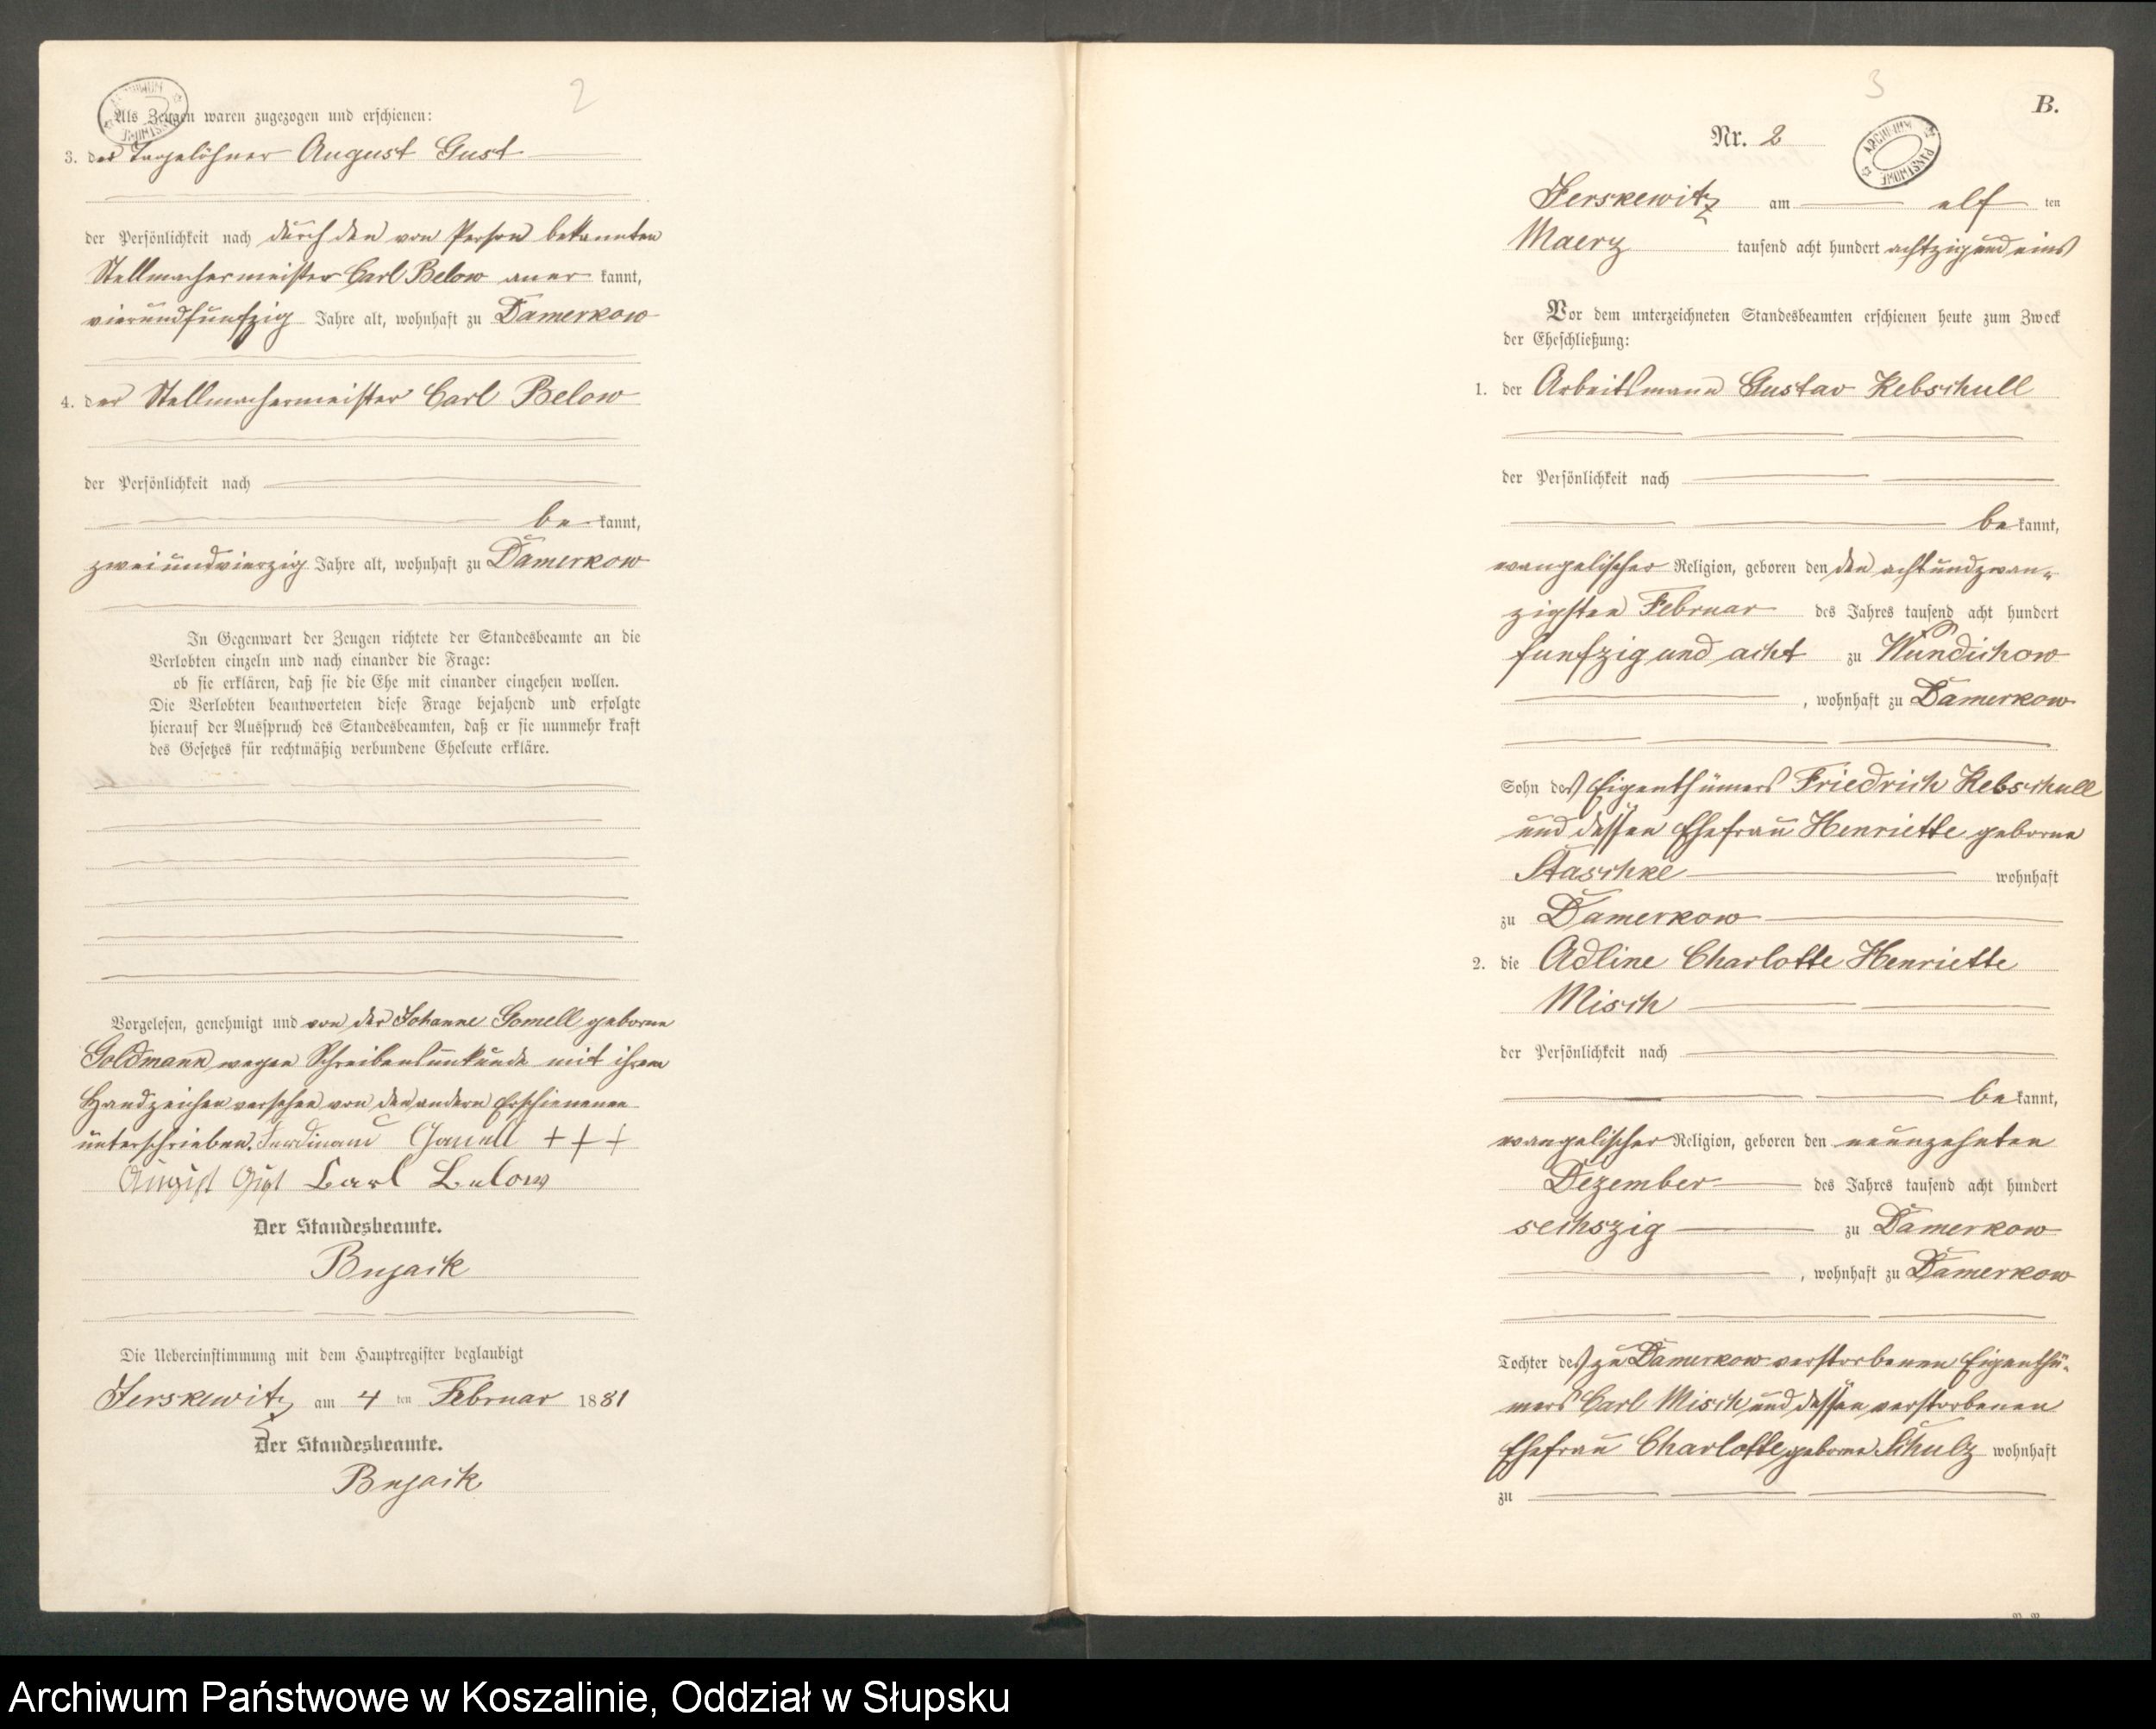 2
Als Zeugen waren zugezogen und erschienen:
3. der Tagelöhner August Gust
der Persönlichkeit nach durch den von Person bekannten
Stellmachermeister Carl Below aner kannt,
vierundfunfzig Jahre alt, wohnhaft zu Damerkow
4. der Stellmachermeister Carl Below
der Persönlichkeit nach
be kannt,
zweiundvierzig Jahre alt, wohnhaft zu Damerkow
In Gegenwart der Zeugen richtete der Standesbeamte an die
Verlobten einzeln und nach einander die Frage:
ob sie erklären, daß sie die Ehe mit einander eingehen wollen.
Die Verlobten beantworteten diese Frage bejahend und erfolgte
hierauf der Ausspruch des Standesbeamten, daß er sie nunmehr kraft
des Gesetzes für rechtmäßig verbundene Eheleute erkläre.
Vorgelesen, genehmigt und von der Johanne Gomell geborne
Goldmann wegen Schreibensunkunde mit ihrem
Handzeichen versehen von den andern Erschienenen
unterschrieben. Ferdinand Gomell + + +
August Gust Carl Below
Der Standesbeamte.
Bujack
Die Uebereinstimmung mit dem Hauptregister beglaubigt
Jerskewitz am 4 ten Februar 1881
Der Standesbeamte.
Bujack
3
B.
Nr. 2
ARCHIWUM PAŃSTWOWE
Jerskewitz am elf ten
Maerz tausend acht hundert achtzig und eins
Vor dem unterzeichneten Standesbeamten erschienen heute zum Zweck
der Eheschließung:
1. der Arbeitsmann Gustav Rebschull
der Persönlichkeit nach
be kannt,
evangelischer Religion, geboren den den achtundzwan-
zigsten Februar des Jahres tausend acht hundert
funfzig und acht zu Wundichow
, wohnhaft zu Damerkow
Sohn des Eigenthümers Friedrich Rebschull
und dessen Ehefrau Henriette geborne
Staschke wohnhaft
zu Damerkow
2. die Adline Charlotte Henriette
Misch
der Persönlichkeit nach
be kannt,
evangelischer Religion, geboren den neunzehnten
Dezember des Jahres tausend acht hundert
sechszig zu Damerkow
, wohnhaft zu Damerkow
Tochter des zu Damerkow verstorbenen Eigenthü-
mers Carl Misch und dessen verstorbenen
Ehefrau Charlotte geborne Schulz wohnhaft
zu
Archiwum Państwowe w Koszalinie, Oddział w Słupsku